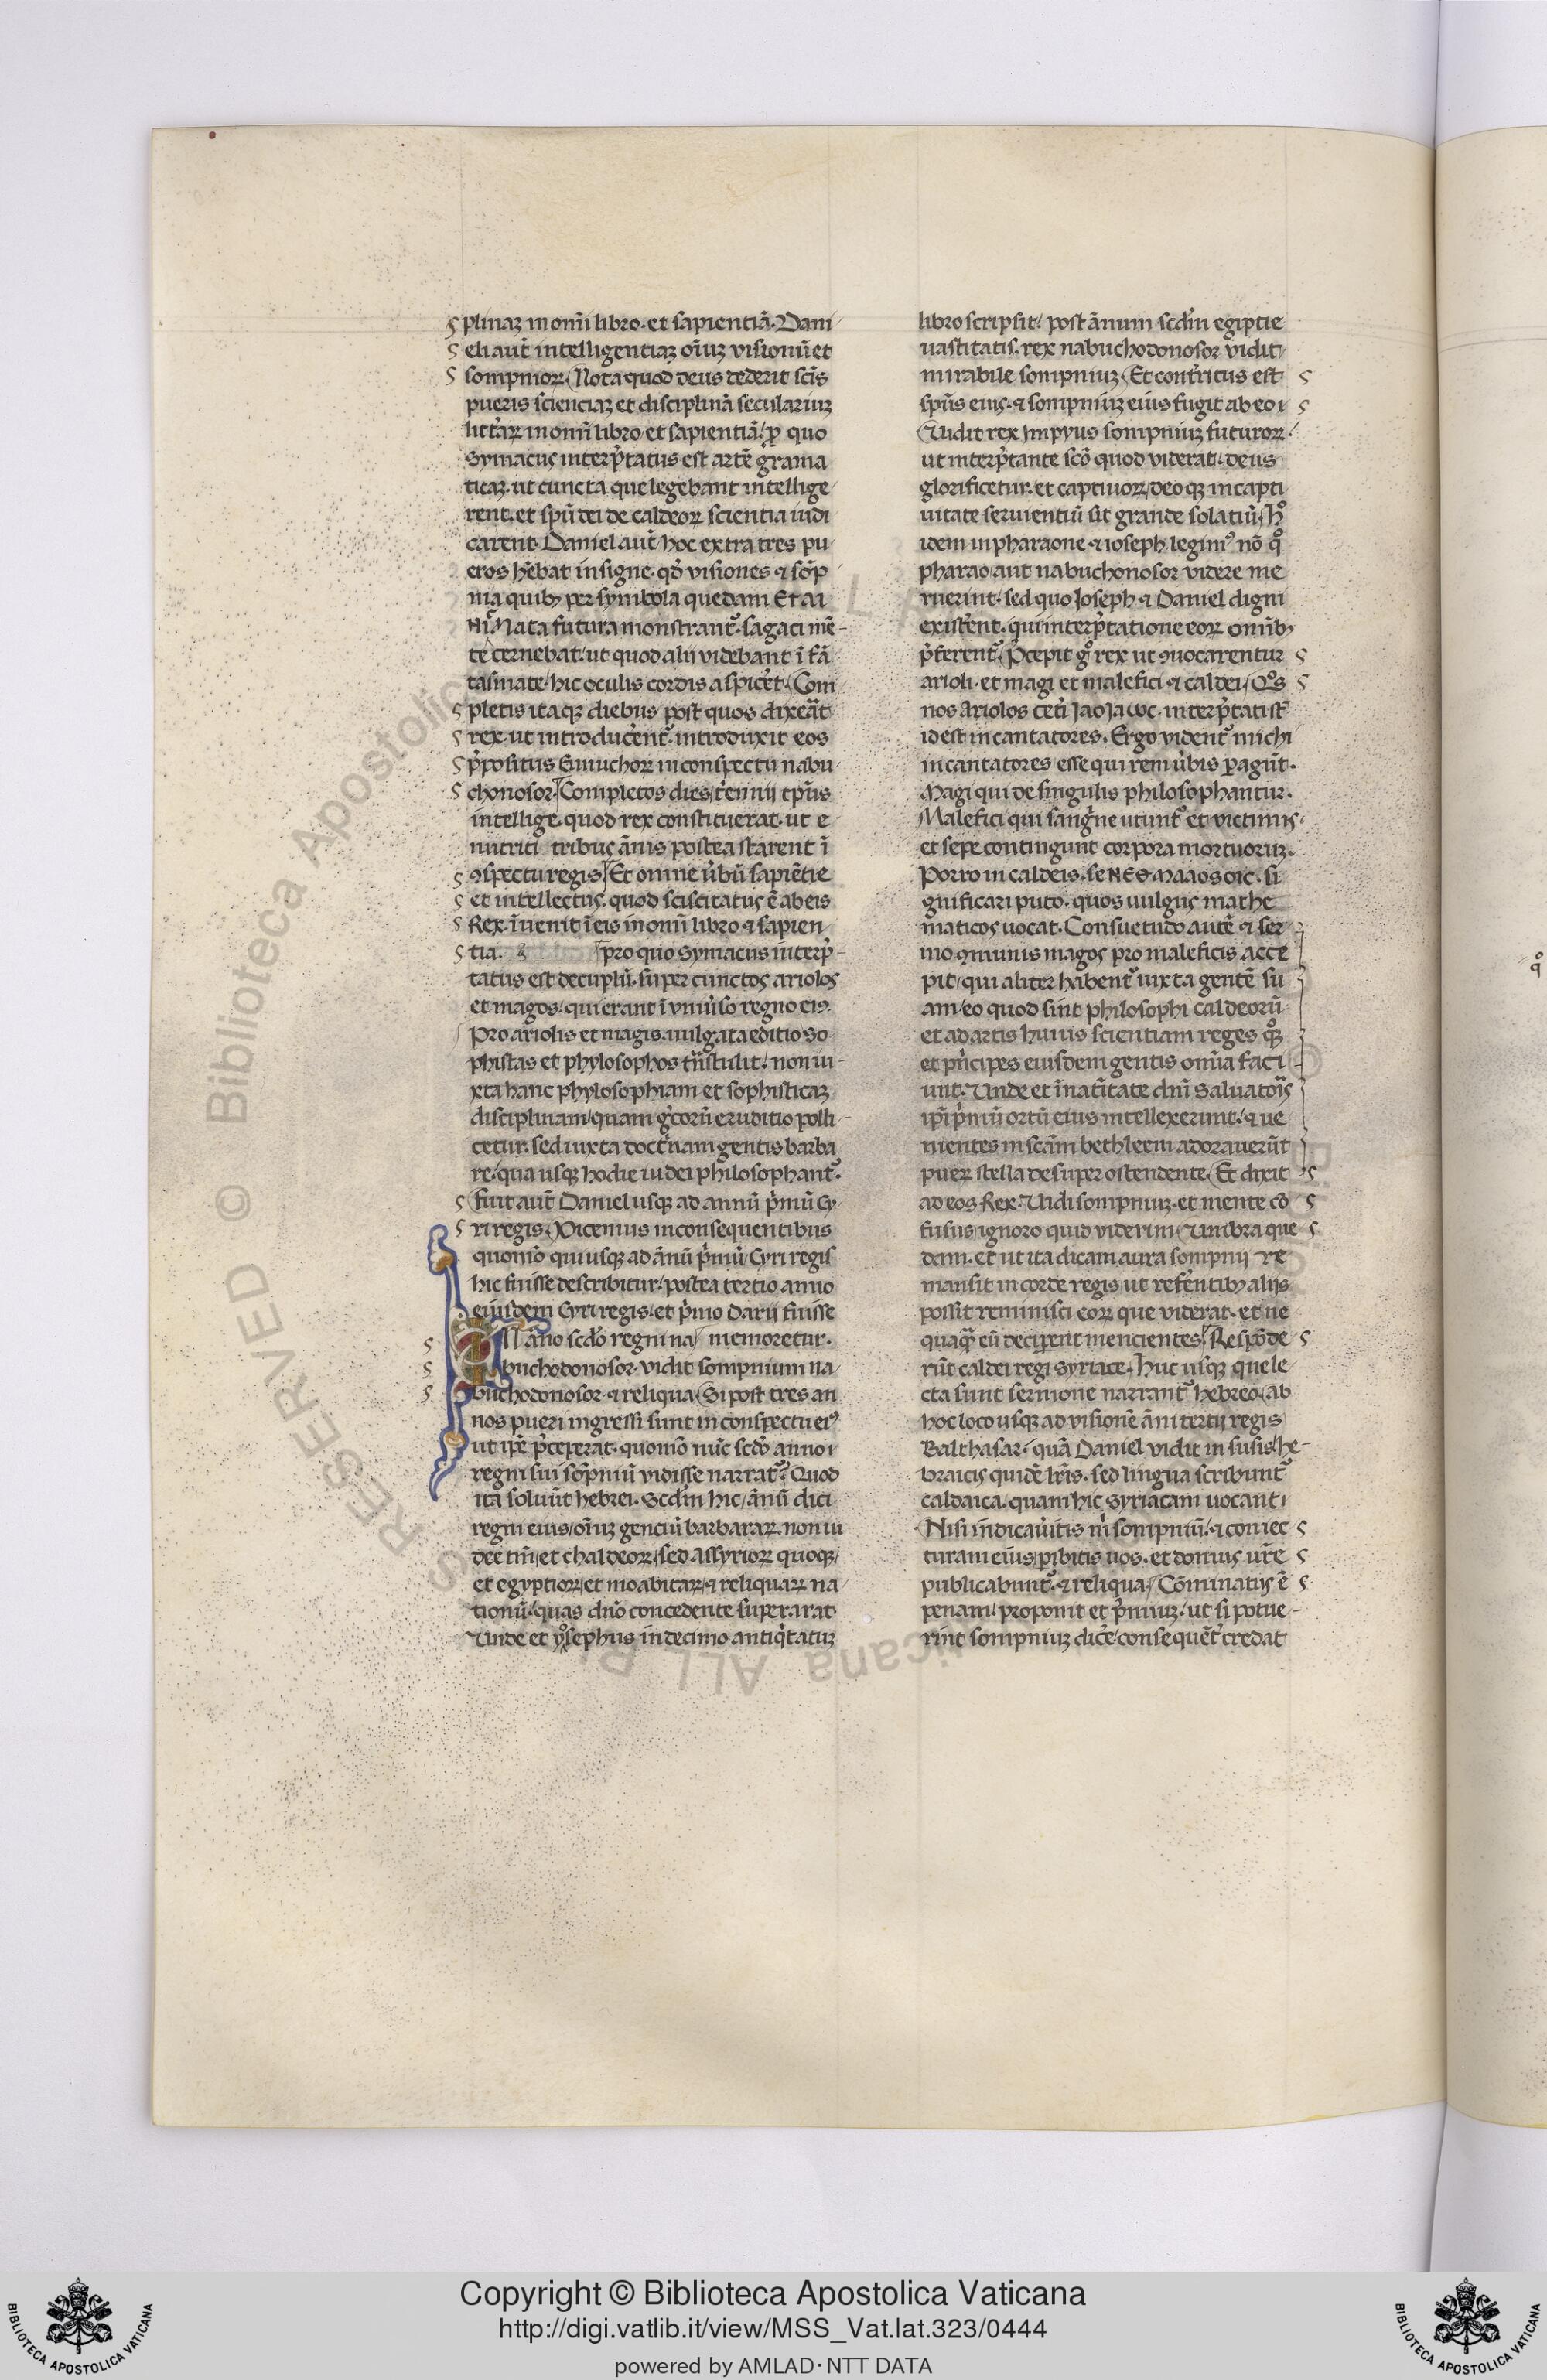 plinaʒ in om̄i libro· et sapientiā· Dani
eli aut̄ intelligentiaʒ oīuʒ visionū et
sompnioꝝ Nota quod deus dederit scīs
pueris scienciaʒ et disciplinā seculariuʒ
litt̄aꝝ in om̄i libro et sapientiā· ꝓ quo
Symacus interp̄tatus est artē grama
ticaʒ· ut cuncta que legebant intellige
rent· et spū dei de caldeoꝝ scientia iudi
carent· Daniel aut̄ hoc extra tres pu
eros hēbat insigne· qd̄ visiones ⁊ sōp
nia quibꝫ per symbola quedam Et ai
ni᷃ata futura monstrant᷒· sagaci mē
te cernebat· ut quod alii videbant ī fā
tasmate· hic oculis cordis aspic̄et· Com
pletis itaqꝫ diebus post quos dixeāt
rex· ut introduc̄ent᷒· introduxit eos
p̄positus Eunuchoꝝ in conspectu nabu
chonosor· Completos dies t̄ennij tp̄is
intellige· quod rex constituerat· ut e
nutriti tribus ānis postea starent ī
ꝯspectu regis Et omne ūbū sapiētie
et intellectus· quod sciscitatus ē ab eis
Rex· īuenit ī eis in om̄i libro ⁊ sapien
tia· pro quo Symacus interp̄
tatus est decuplū· super cunctos ariolos
et magos· qui erant ī vniūso regno eiꝰ·
Pro ariolis et magis· uulgata editio so
phistas et phylosophos tn̄stulit· non iu
xta hanc phylosophiam et sophisticaʒ
disciplinam· quam ḡcorū eruditio polli
cetur· sed iuxta doct̄nam gentis barba
re· qua usqꝫ hodie iudei philosophant᷒·
fuit aut̄ Daniel usqꝫ ad annū p̄mū Cy
ri regis Dicemus in consequentibus
quomō qui usqꝫ ad ānū p̄mū Cyri regis
hic fuisse describitur· postea tertio anno
eiusdem Cyri regis· et p̄mo Darij fuisse
IN an̄o scd̄o regni na memoretur·
buchodonosor· vidit sompnium na
buchodonosor· ⁊ reliqua Si post tres an
nos pueri ingressi sunt in conspectu eiꝰ
ut ip̄e p̄ceperat· quomō nūc scd̄o anno
regni sui sōpniū vidisse narrat᷒· Quod
ita soluūt hebrei· Scd̄m hic ānū dici
regni eius oīuʒ genciū barbaraꝝ· non iu
dee tm̄ et chaldeoꝝ sed Assyrioꝝ quoqꝫ
et egyptioꝝ et moabitaꝝ ⁊ reliquaꝝ na
tionū· quas dn̄o concedente superarat·
Unde et yosephus in decimo antiq̄tatuʒ
libro scripsit· post ānum scd̄m egiptie
uastitatis· rex nabuchodonosor vidit
mirabile sompniuʒ· Et cont̄ritus est
spūs eius· ⁊ sompniuʒ eius fugit ab eo
Uidit rex Impyus sompniuʒ futuroꝝ·
ut interp̄tante scō quod viderat· deus
glorificetur· et captiuoꝝ deoqꝫ in capti
uitate seruientiū sit grande solatiū· h°
idem in pharaone ⁊ ioseph legimꝰ nō q°
pharao aut nabuchonosor videre me
ruerint· sed quo Ioseph ⁊ Daniel digni
exist̄ent· qui interp̄tatione eoꝝ omībꝫ
p̄ferent᷒· P̄cepit g° rex ut ꝯuocarentur
arioli· et magi et malefici ⁊ caldei· Q°s
nos Ariolos cet̄i · interp̄tati st̄
id est incantatores· Ergo vident᷒ michi
incantatores esse qui rem ūbis ꝑagūt·
Magi qui de singulis philosophantur·
Malefici qui sanḡne utunt᷒ et victimis
et sepe contingunt corpora mortuoruʒ·
Porro in caldeis· si
gnificari puto· quos uulgus mathe
maticos uocat· Consuetudo autē ⁊ ser
mo ꝯmunis magos pro maleficis acce
pit· qui aliter habent᷒ iuxta gentē su
am· eo quod sint philosophi caldeorū
et ad artis huius scientiam reges q°qꝫ
et pn̄cipes eiusdem gentis om̄ia faci
unt· Unde et ī natīitate dn̄i Saluatoīs
ip̄i p̄mū ortū eius intellexerunt· ⁊ ue
nientes in scāīm bethleem adorauerūt
pueꝝ stella desuper ostendente· Et dixit
ad eos Rex· Uidi sompniuʒ· et mente cō
fusus ignoro quid viderim· Umbra que
dam· et ut ita dicam aura sompnij re
mansit in corde regis ut refēntibꝫ alijs
possit reminisci eoꝝ que viderat· et ne
quaqꝫ eū decip̄ent mencientes· Respōde
rūt caldei regi syriace· Huc usqꝫ que le
cta sunt sermone narrant᷒ hebreo· ab
hoc loco usqꝫ ad visionē āni tertij regis
Balthasar· quā Daniel vidit in susis he
braicis quidē lr̄is· sed lingua scribunt᷒
caldaica· quam hic Syriacam uocant
Nisi indicaūitis m̄ sompniū· ⁊ coniec
turam eius ꝑibitis uos· et domus ur̄e
publicabunt᷒· ⁊ reliqua· Cōminatus ē
penam· proponit et p̄miuʒ· ut si potue
rint sompniuʒ dic̄e consequēt̄ credat
Copyright © Biblioteca Apostolica Vaticana
http://digi.vatlib.it/view/MSS_Vat.lat.323/0444
powered by AMLAD·NTT DATA